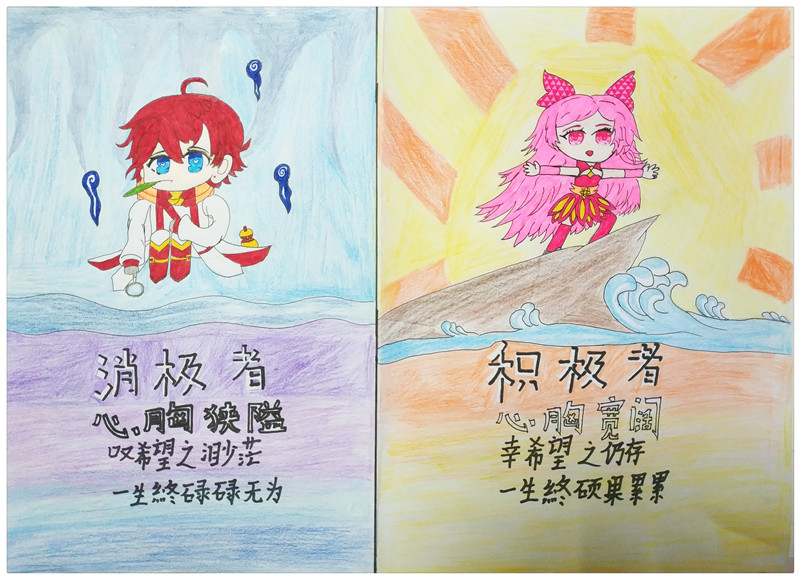 消极者
心胸狭隘
叹希望之渺茫
一生終碌碌无为
积极者
心胸宽阔
幸希望之仍存
一生終硕果累累